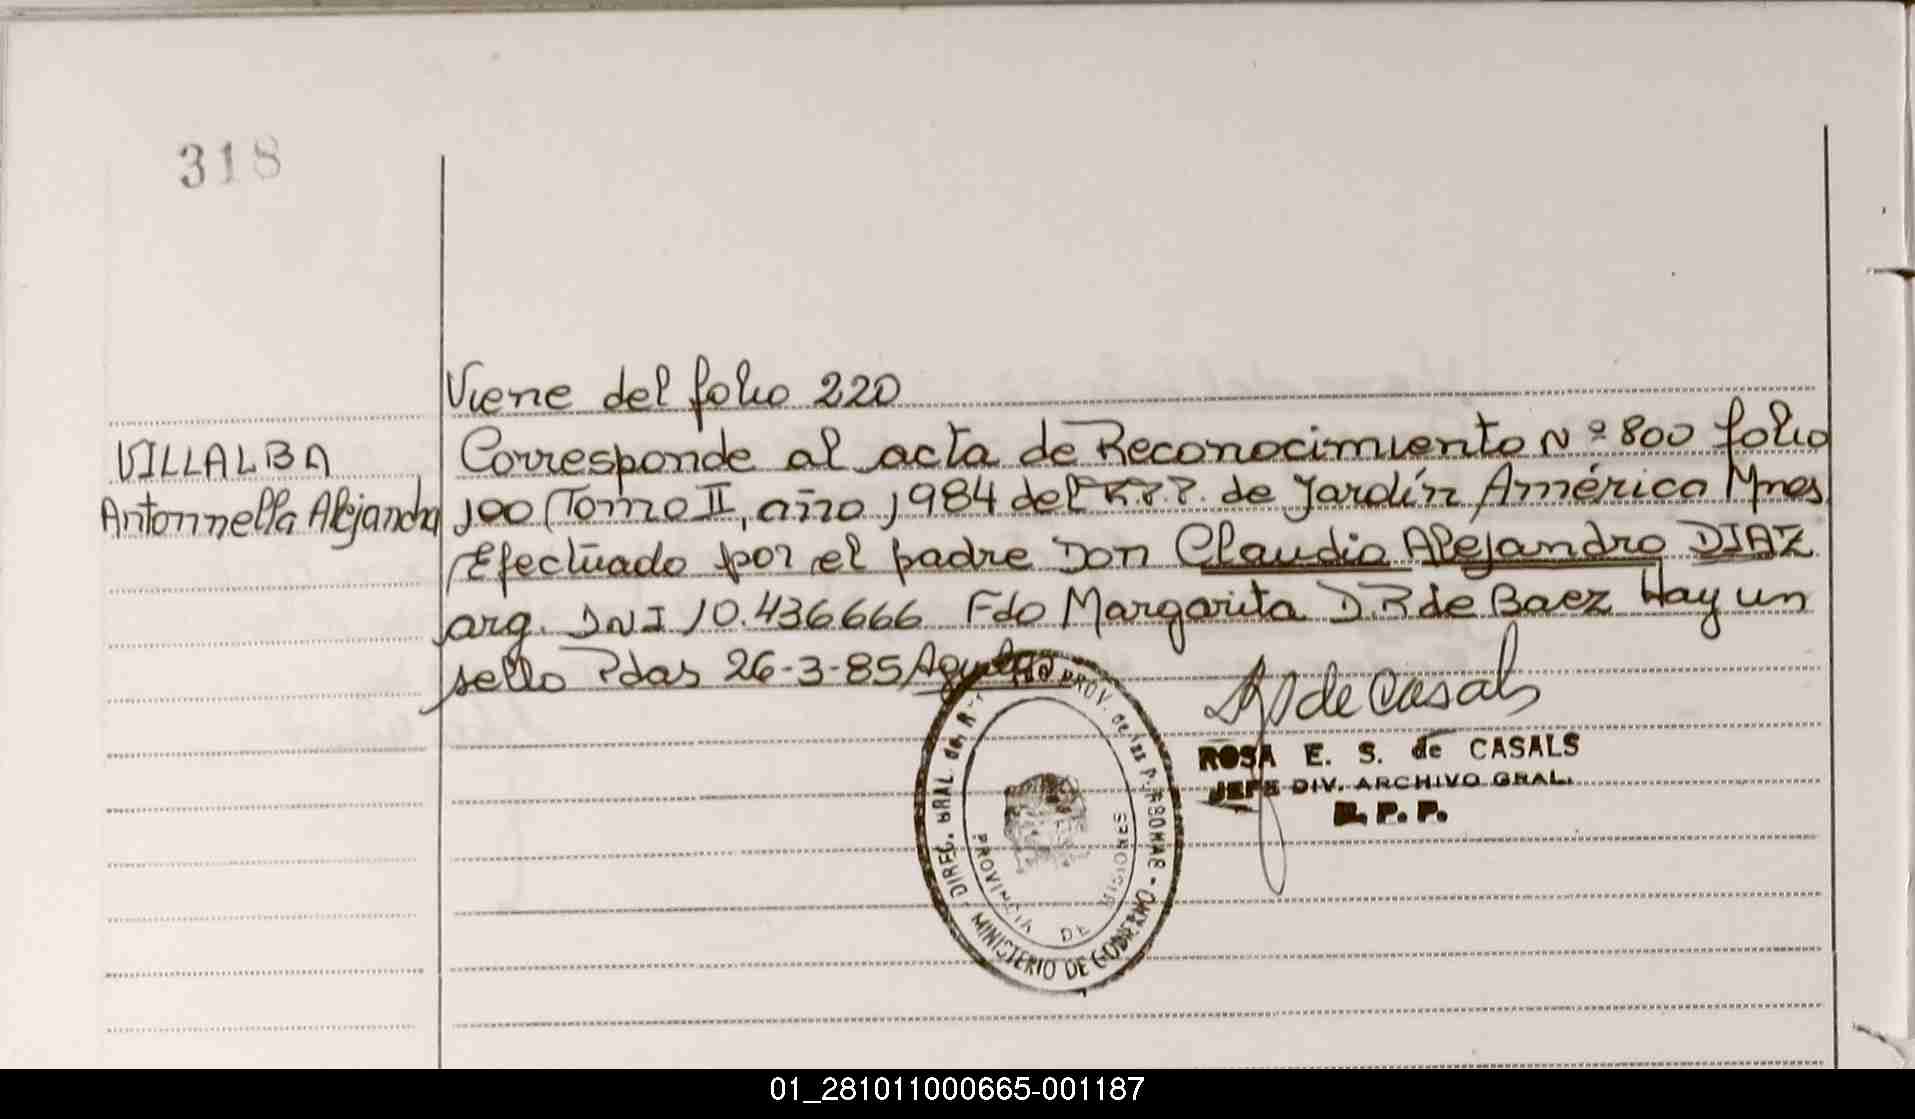 318
Viene del folio 220
VILLALBA Corresponde al acta de Reconocimiento Nº 800 folio
Antonnella Alejandra 100 Tomo II, año 1984 del R.P.P. de Jardín América Mnes
Efectuado por el padre Don Claudio Alejandro DIAZ
arg. DNI 10.436666 Fdo Margarita D.R de Baez Hay un
sello Pdas 26-3-85
de Casals
ROSA E. S. de CASALS
JEFE DIV. ARCHIVO GRAL.
R. P. P.
DIREC. GRAL. del PROV. de las
MINISTERIO DE GOBIERNO
PROVINCIA DE MISIONES
01_281011000665-001187